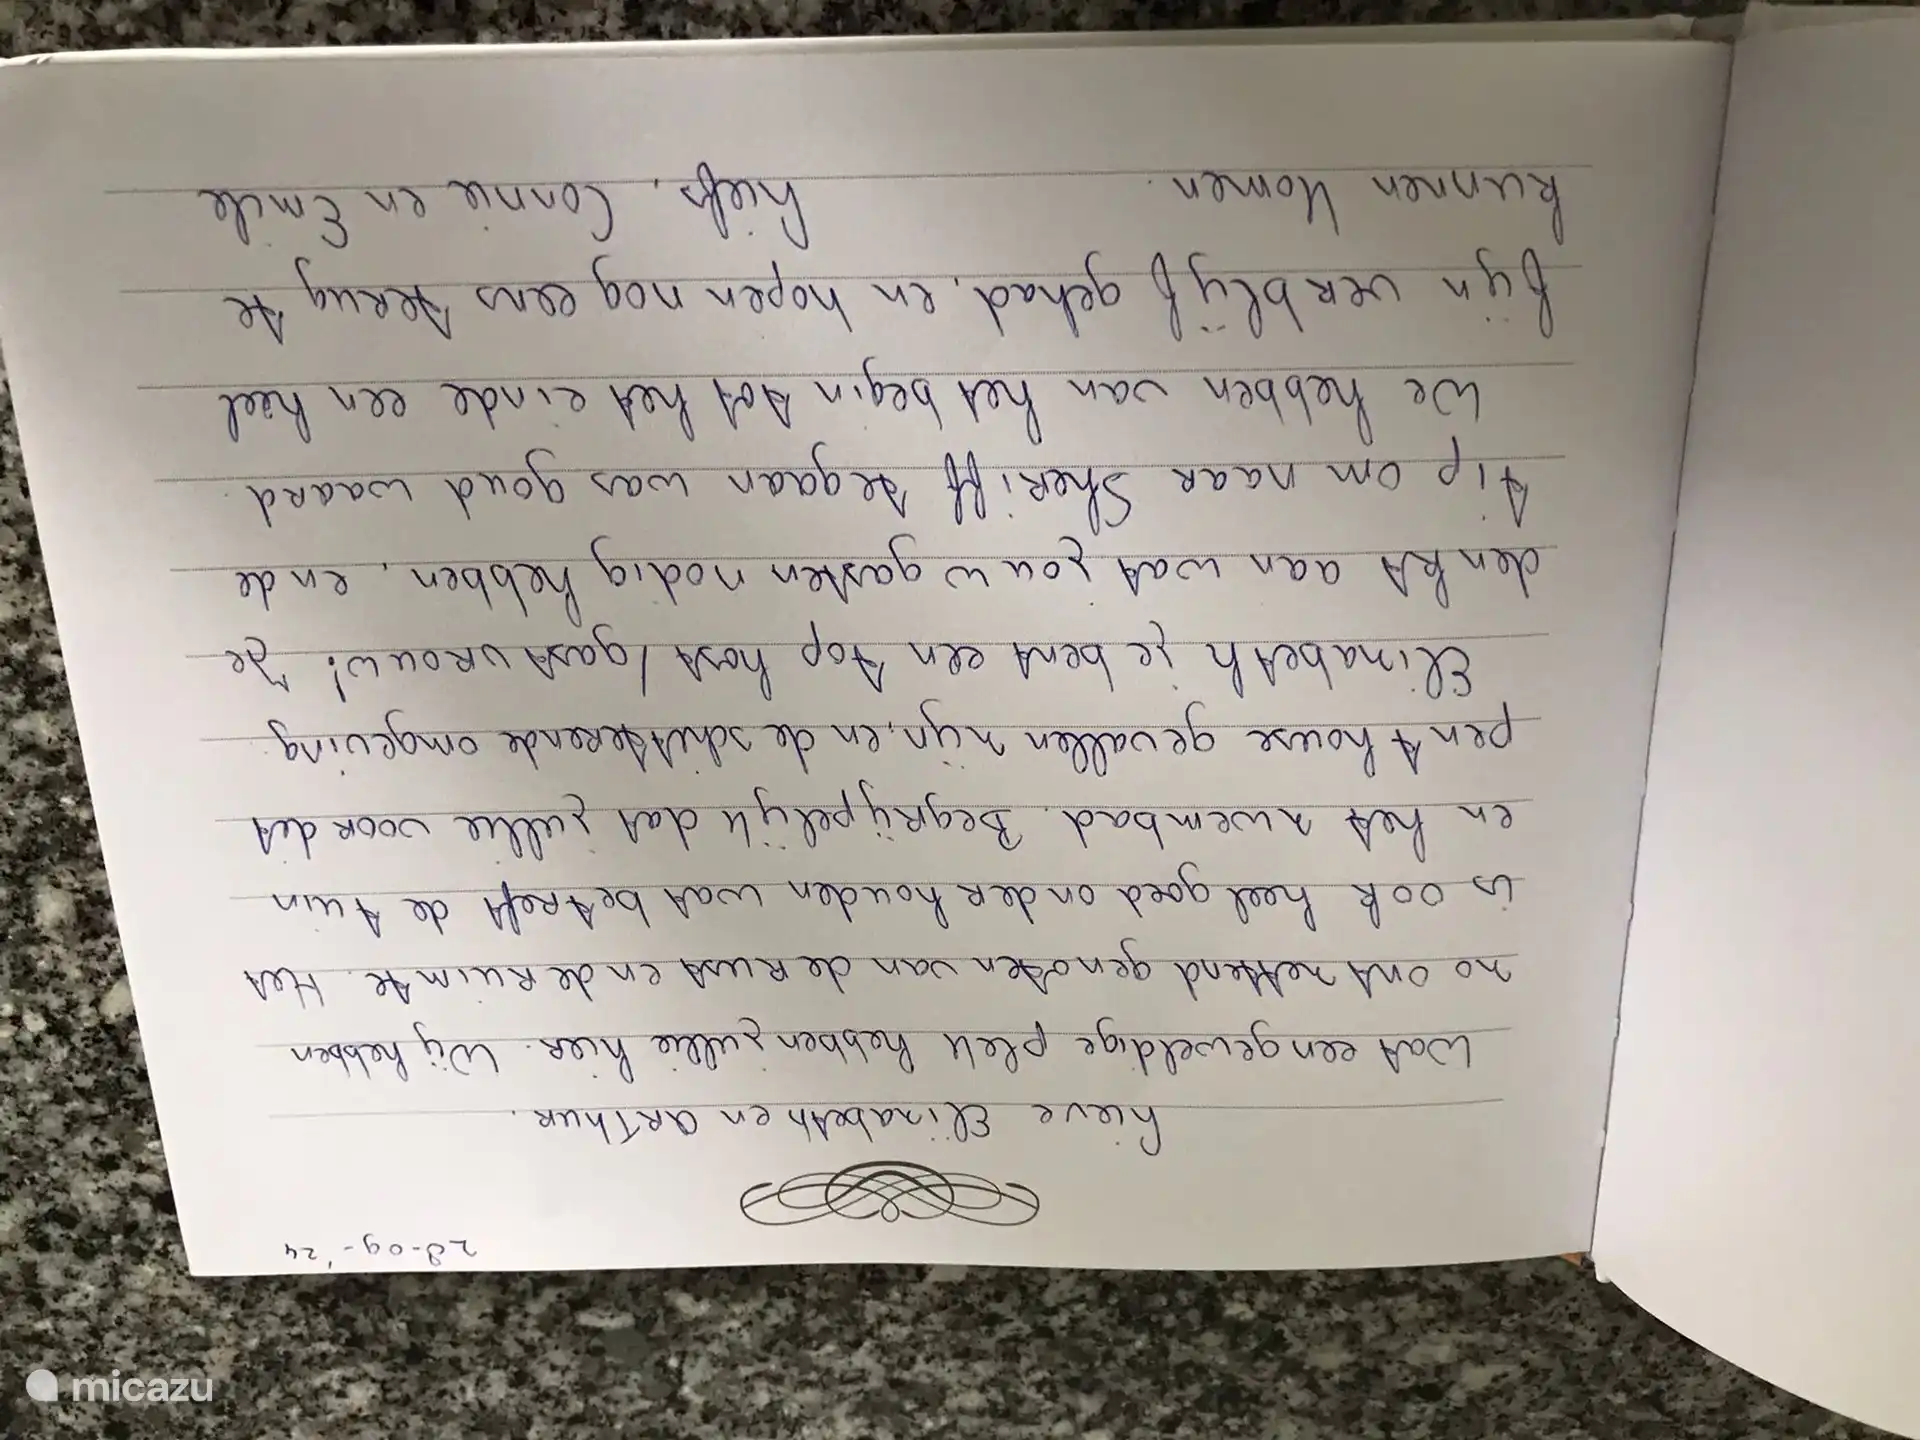 28-09-'24
Lieve Elizabeth en Arthur.
Wat een geweldige plek hebben jullie hier. Wij hebben
zo ontzettend genoten van de Rust en de Ruimte. Het
is ook heel goed onderhouden wat betreft de tuin
en het zwembad. Begrijpelijk dat jullie voor dit
penthouse gevallen zijn, en de schitterende omgeving.
Elizabeth je bent een top host/gastvrouw! Je
denkt aan wat jouw gasten nodig hebben, en de
tip om naar Sheriff te gaan was goud waard.
We hebben van het begin tot het einde een heel
fijn verblijf gehad, en hopen nog eens terug te
kunnen komen. Liefs, Connie en Emile
micazu